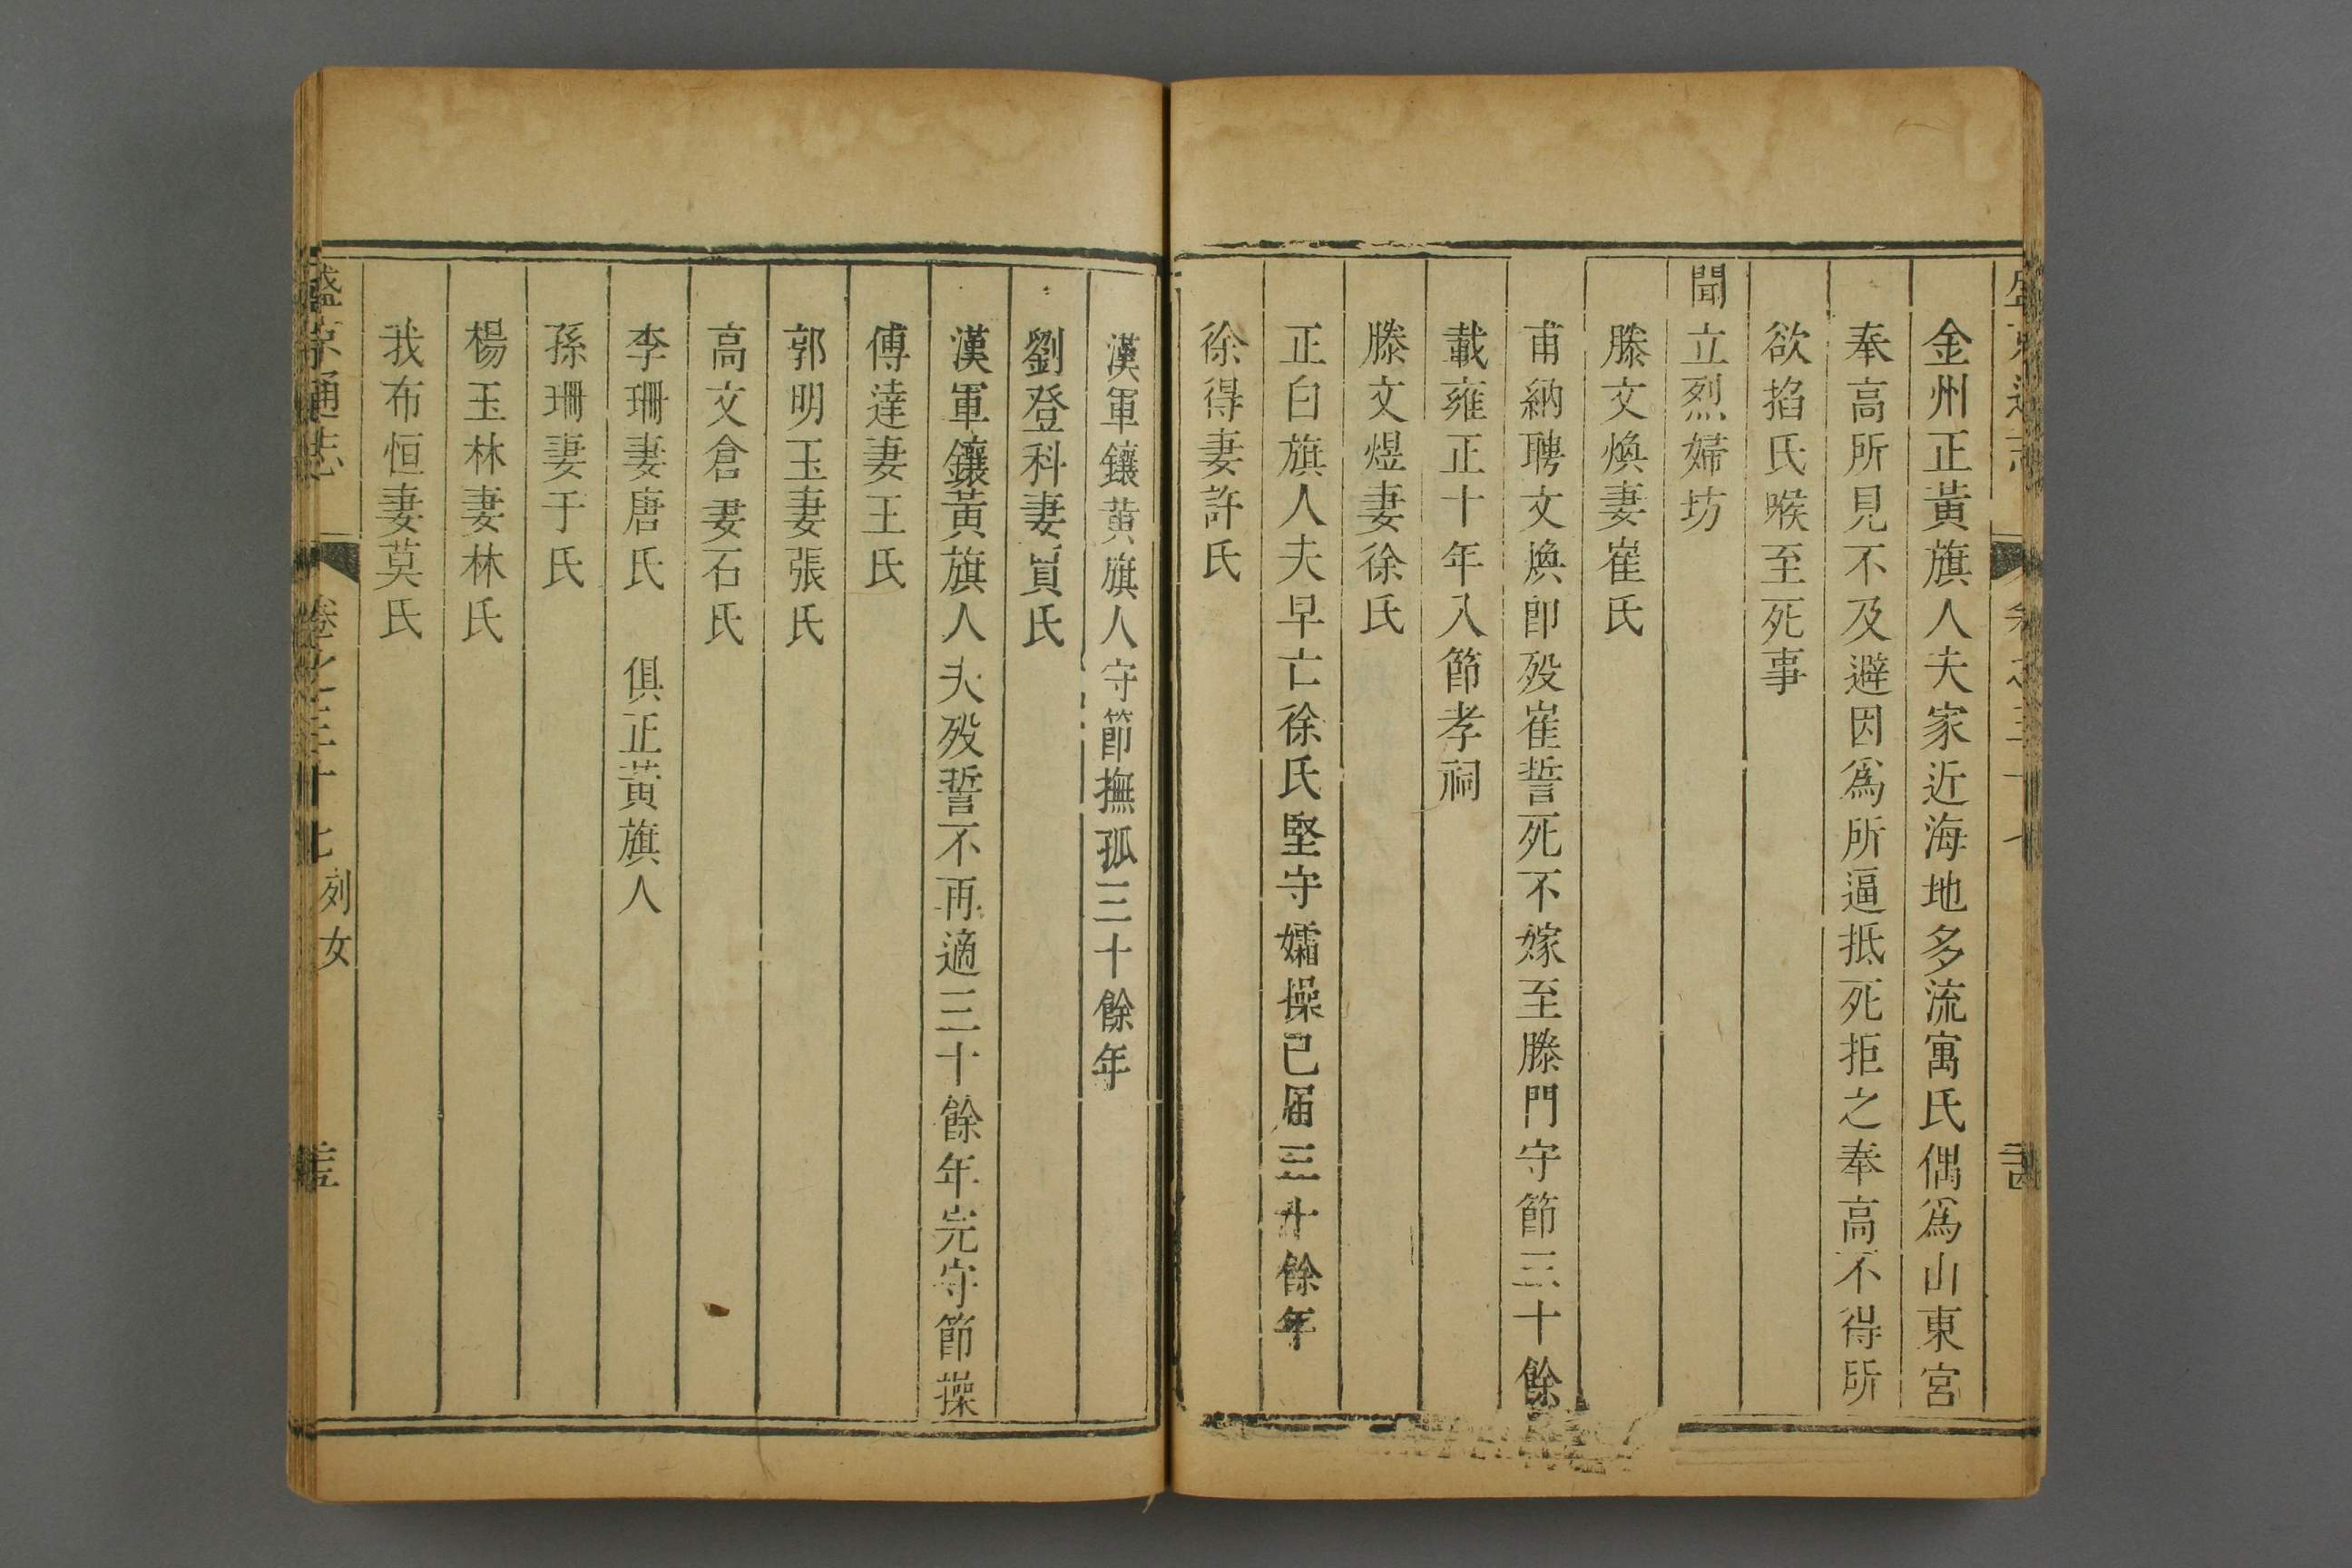 金州正黃旗人夫家近海地多流寓氏偶爲山東宮
奉高所見不及避因爲所逼抵死拒之奉高不得所
欲掐氏喉至死事
聞立烈婦坊
滕文煥妻崔氏
甫納聘文煥卽殁崔誓死不嫁至滕門守節三十餘
載雍正十年入節孝祠
滕文煜妻徐氏
正白旗人夫早亡徐氏堅守孀操已屆三十餘年
徐得妻許氏
漢軍鑲黃旗人守節撫孤三十餘年
劉登科妻員氏
漢軍鑲黃旗人夫殁誓不再適三十餘年完守節操
傅達妻王氏
郭明玉妻張氏
高文倉妻石氏
李珊妻唐氏　俱正黃旗人
孫珊妻于氏
楊玉林妻林氏
我布恒妻莫氏
盛京通志　卷之三十七　列女